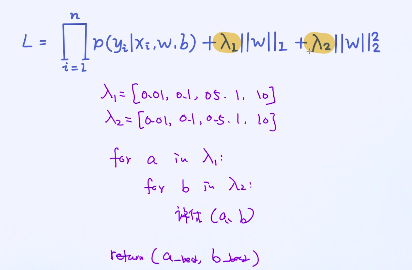 L = ∏_{i=1}^{n} p(y_i|x_i, w, b) + λ_1||w||_1 + λ_2||w||_2^2
λ_1 = [0.01, 0.1, 0.5. 1, 10]
λ_2 = [0.01, 0.1, 0.5. 1, 10]
for a in λ_1:
for b in λ_2:
评估 (a, b)
return (a_best, b_best)